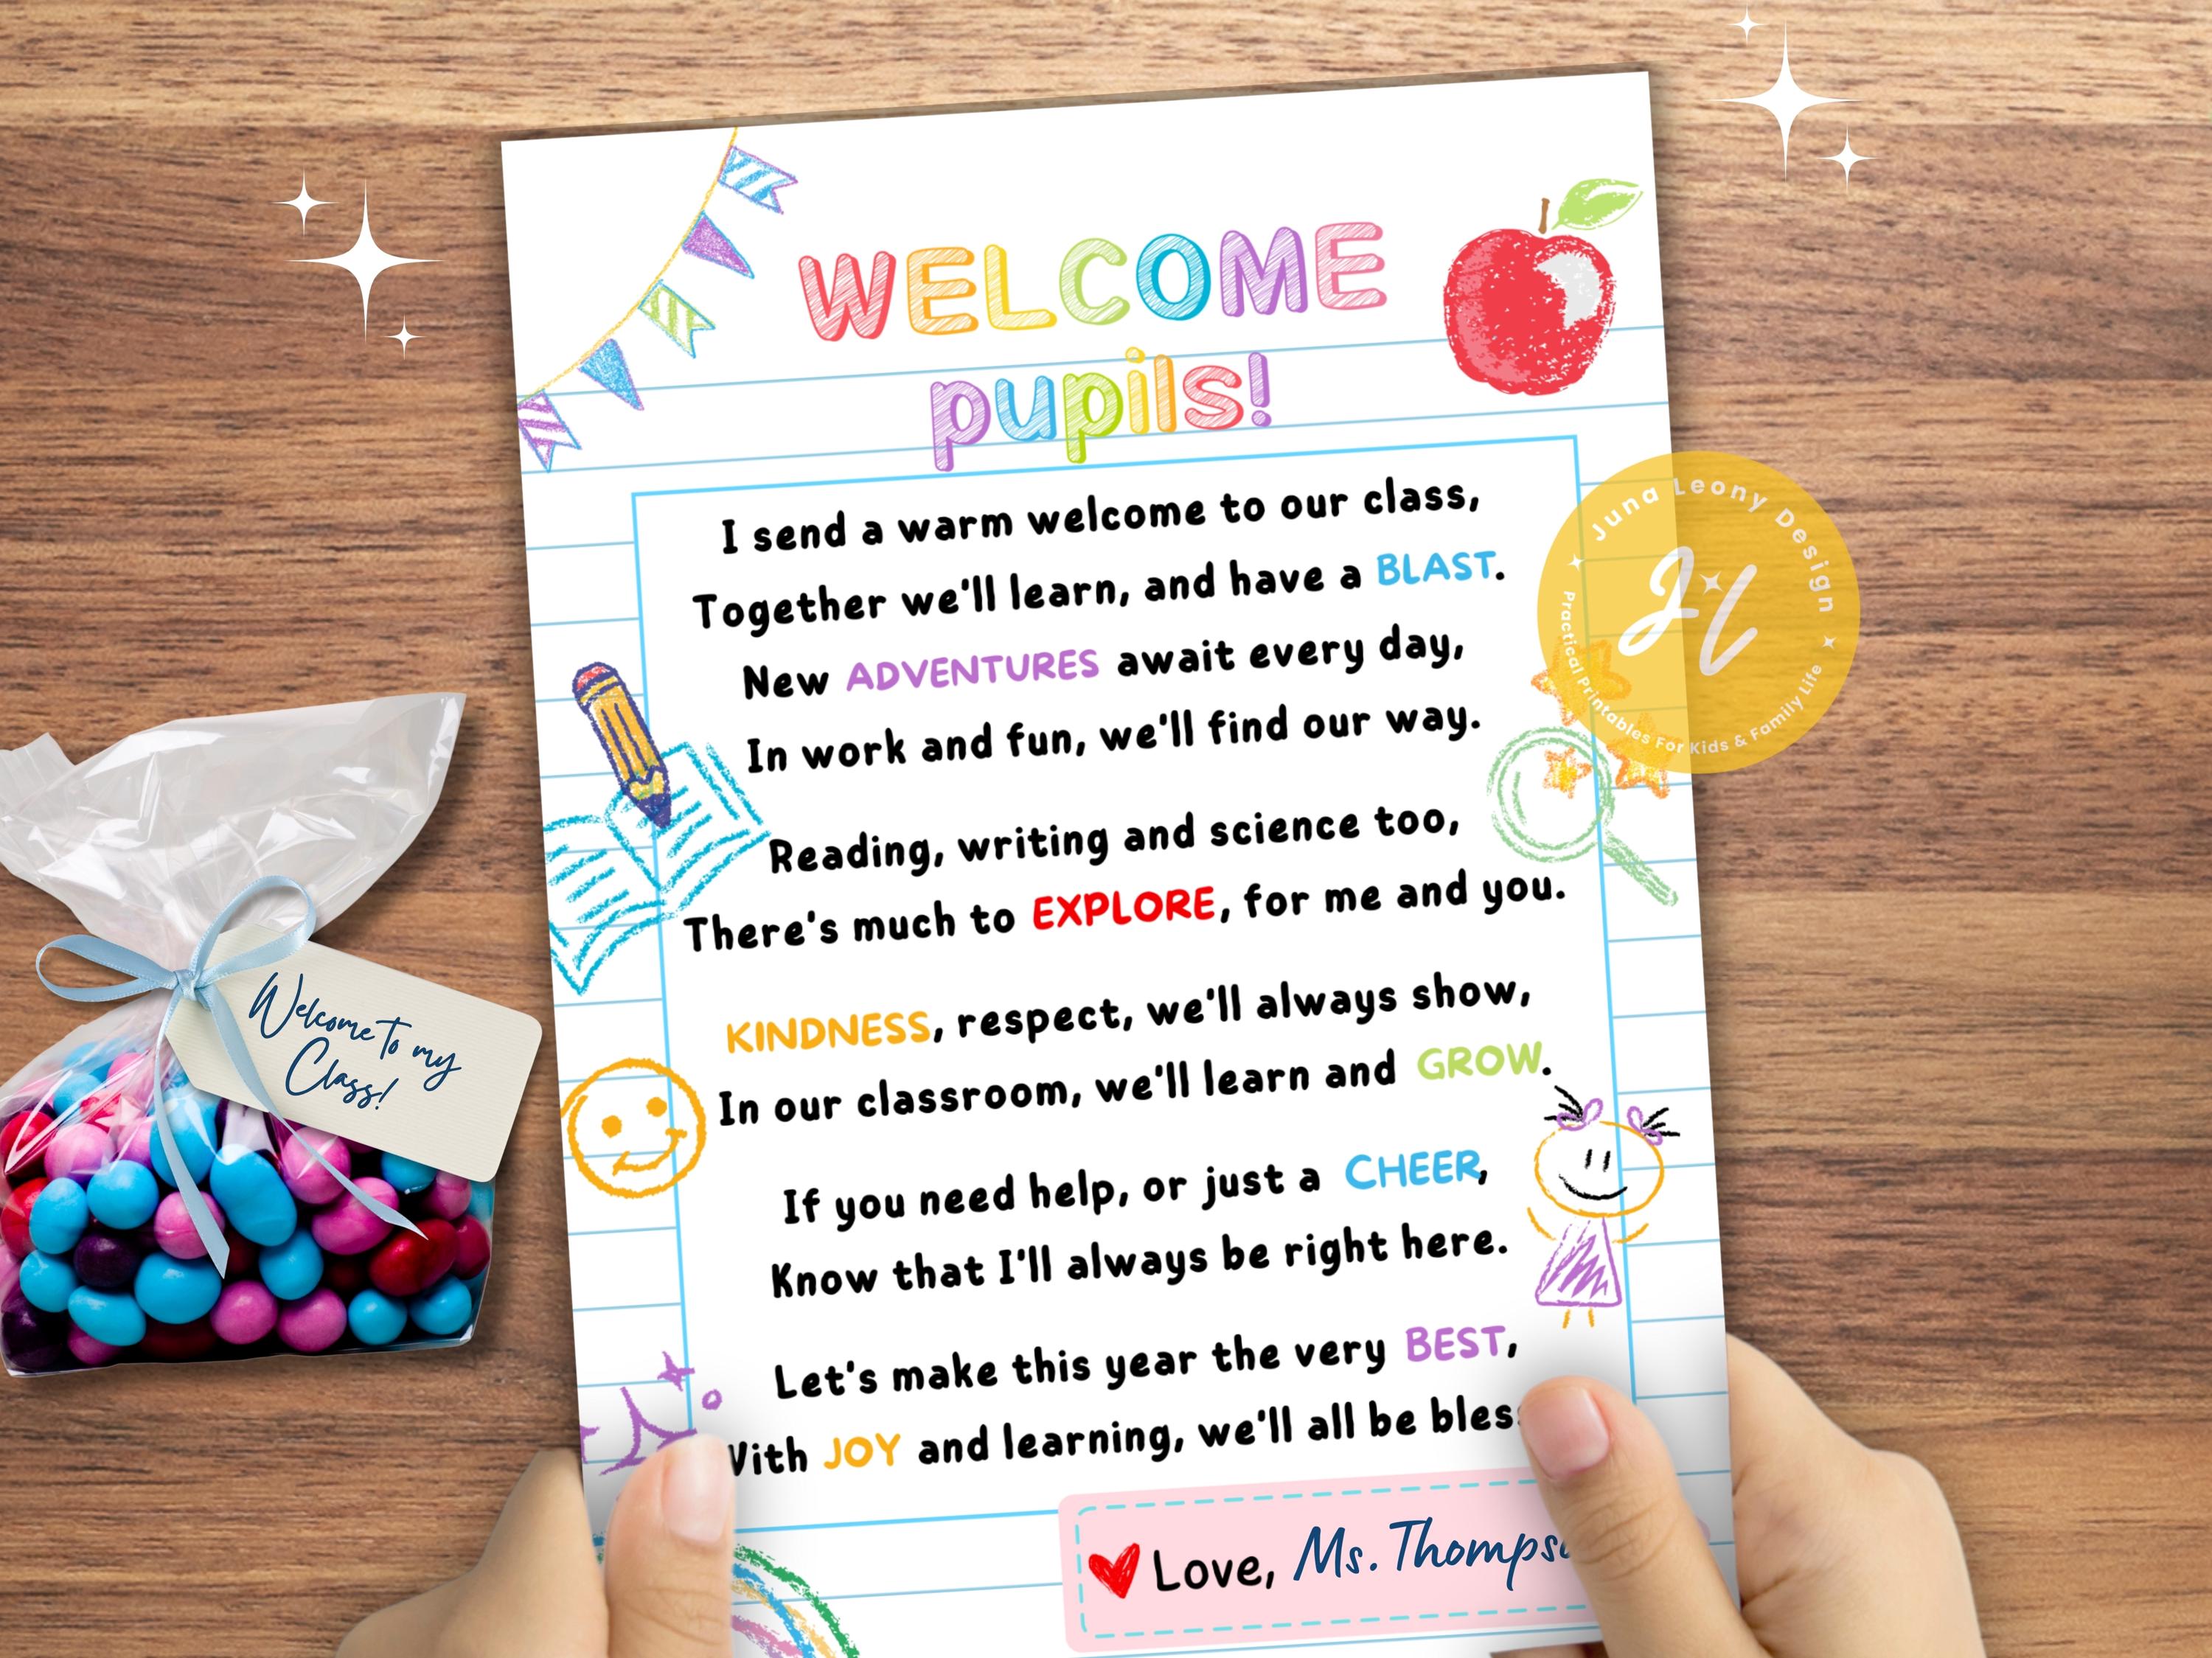 WELCOME
pupils!
I send a warm welcome to our class,
Together we'll learn, and have a BLAST.
New ADVENTURES await every day,
In work and fun, we'll find our way.
Reading, writing and science too,
There's much to EXPLORE, for me and you.
KINDNESS, respect, we'll always show,
In our classroom, we'll learn and GROW.
If you need help, or just a CHEER,
Know that I'll always be right here.
Let's make this year the very BEST,
With JOY and learning, we'll all be
Love, Ms.
Welcome to my
Class!
Juna Leony Design
JL
Practical Printables For Kids & Family Life